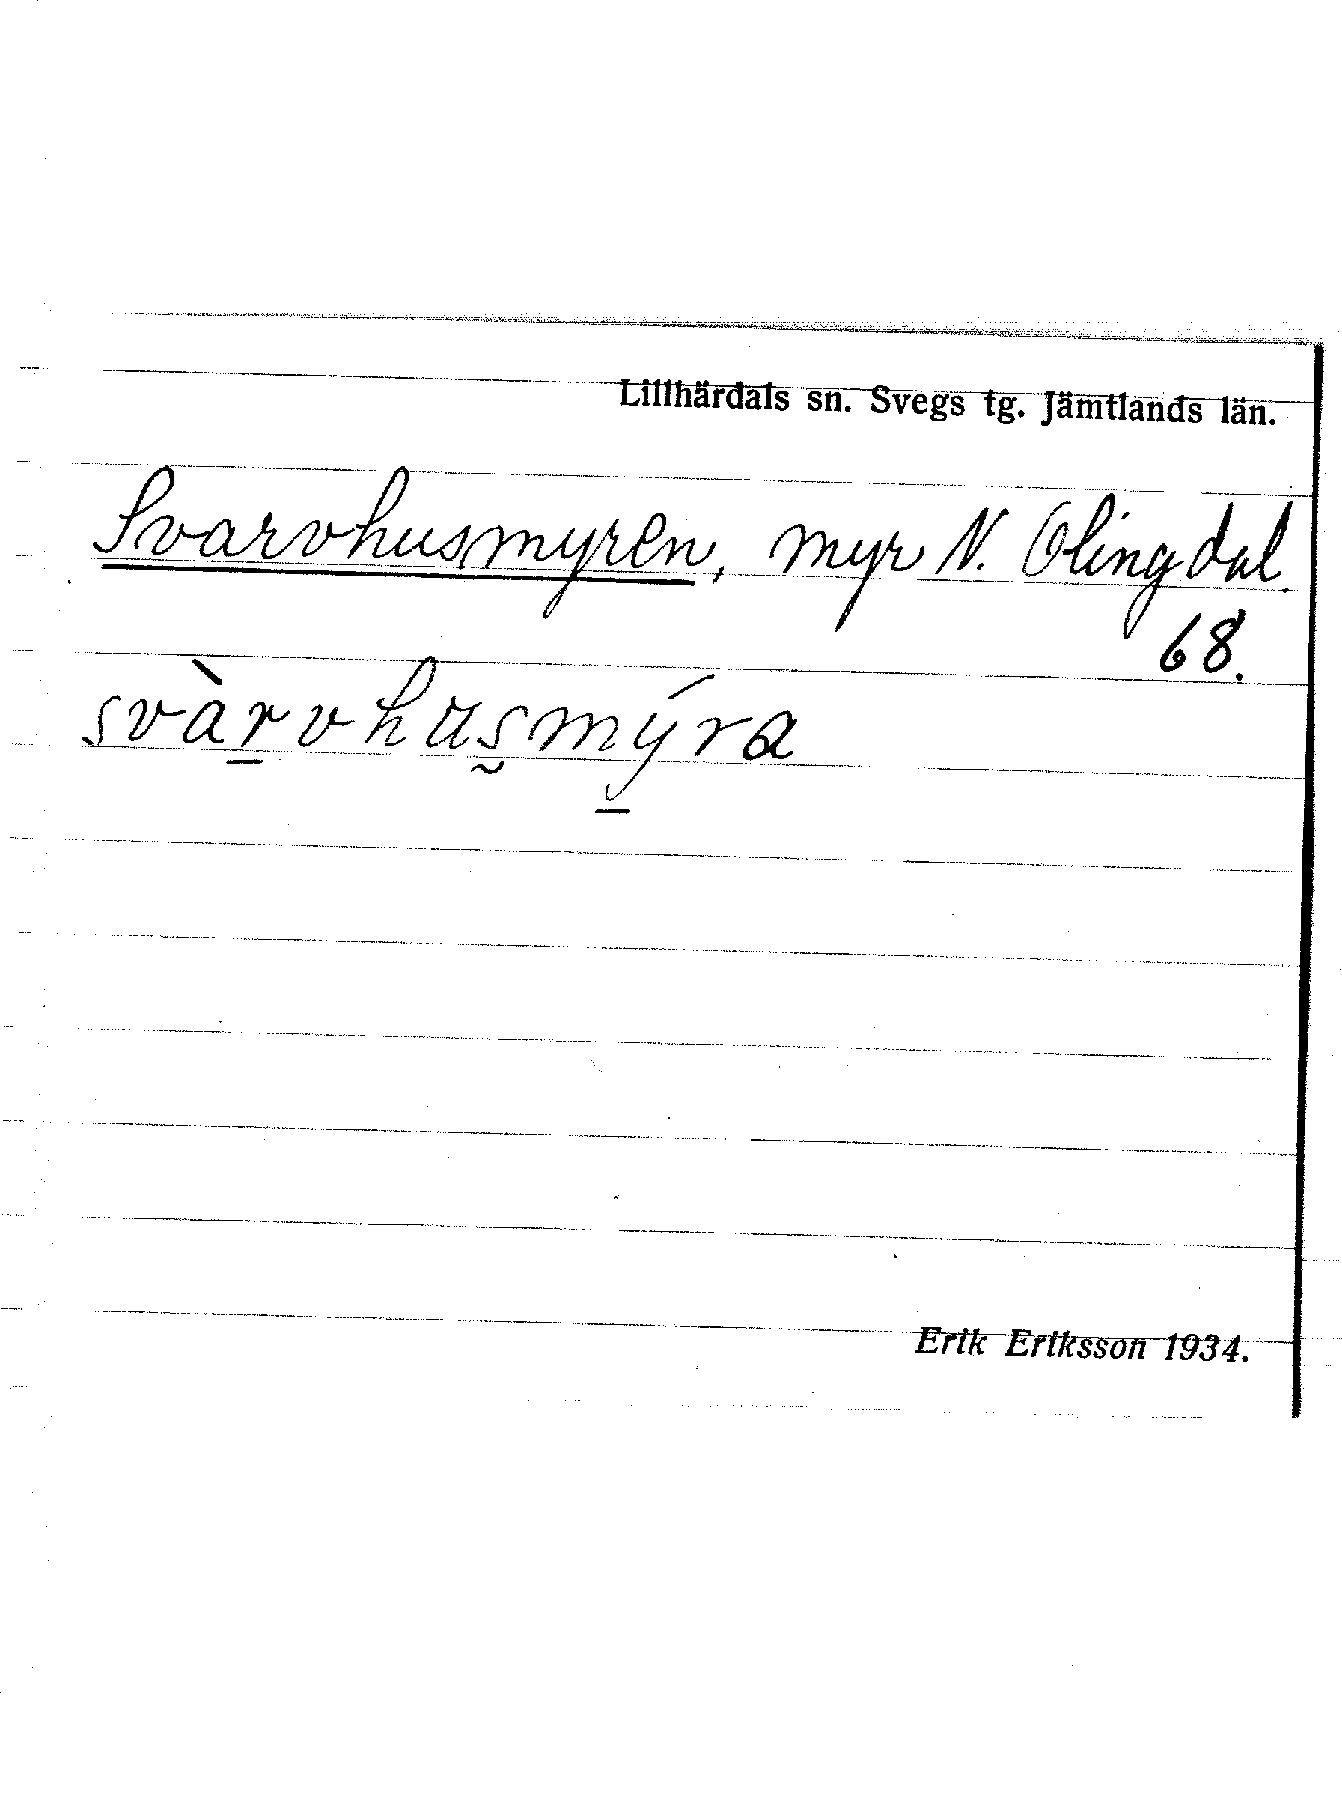 Lillhärdals sn. Svegs tg. Jämtlands län.
Svarvhusmyren, myr N. Olingdal
68.
svàr̲vhus̰mý̲ra
Erik Eriksson 1934.